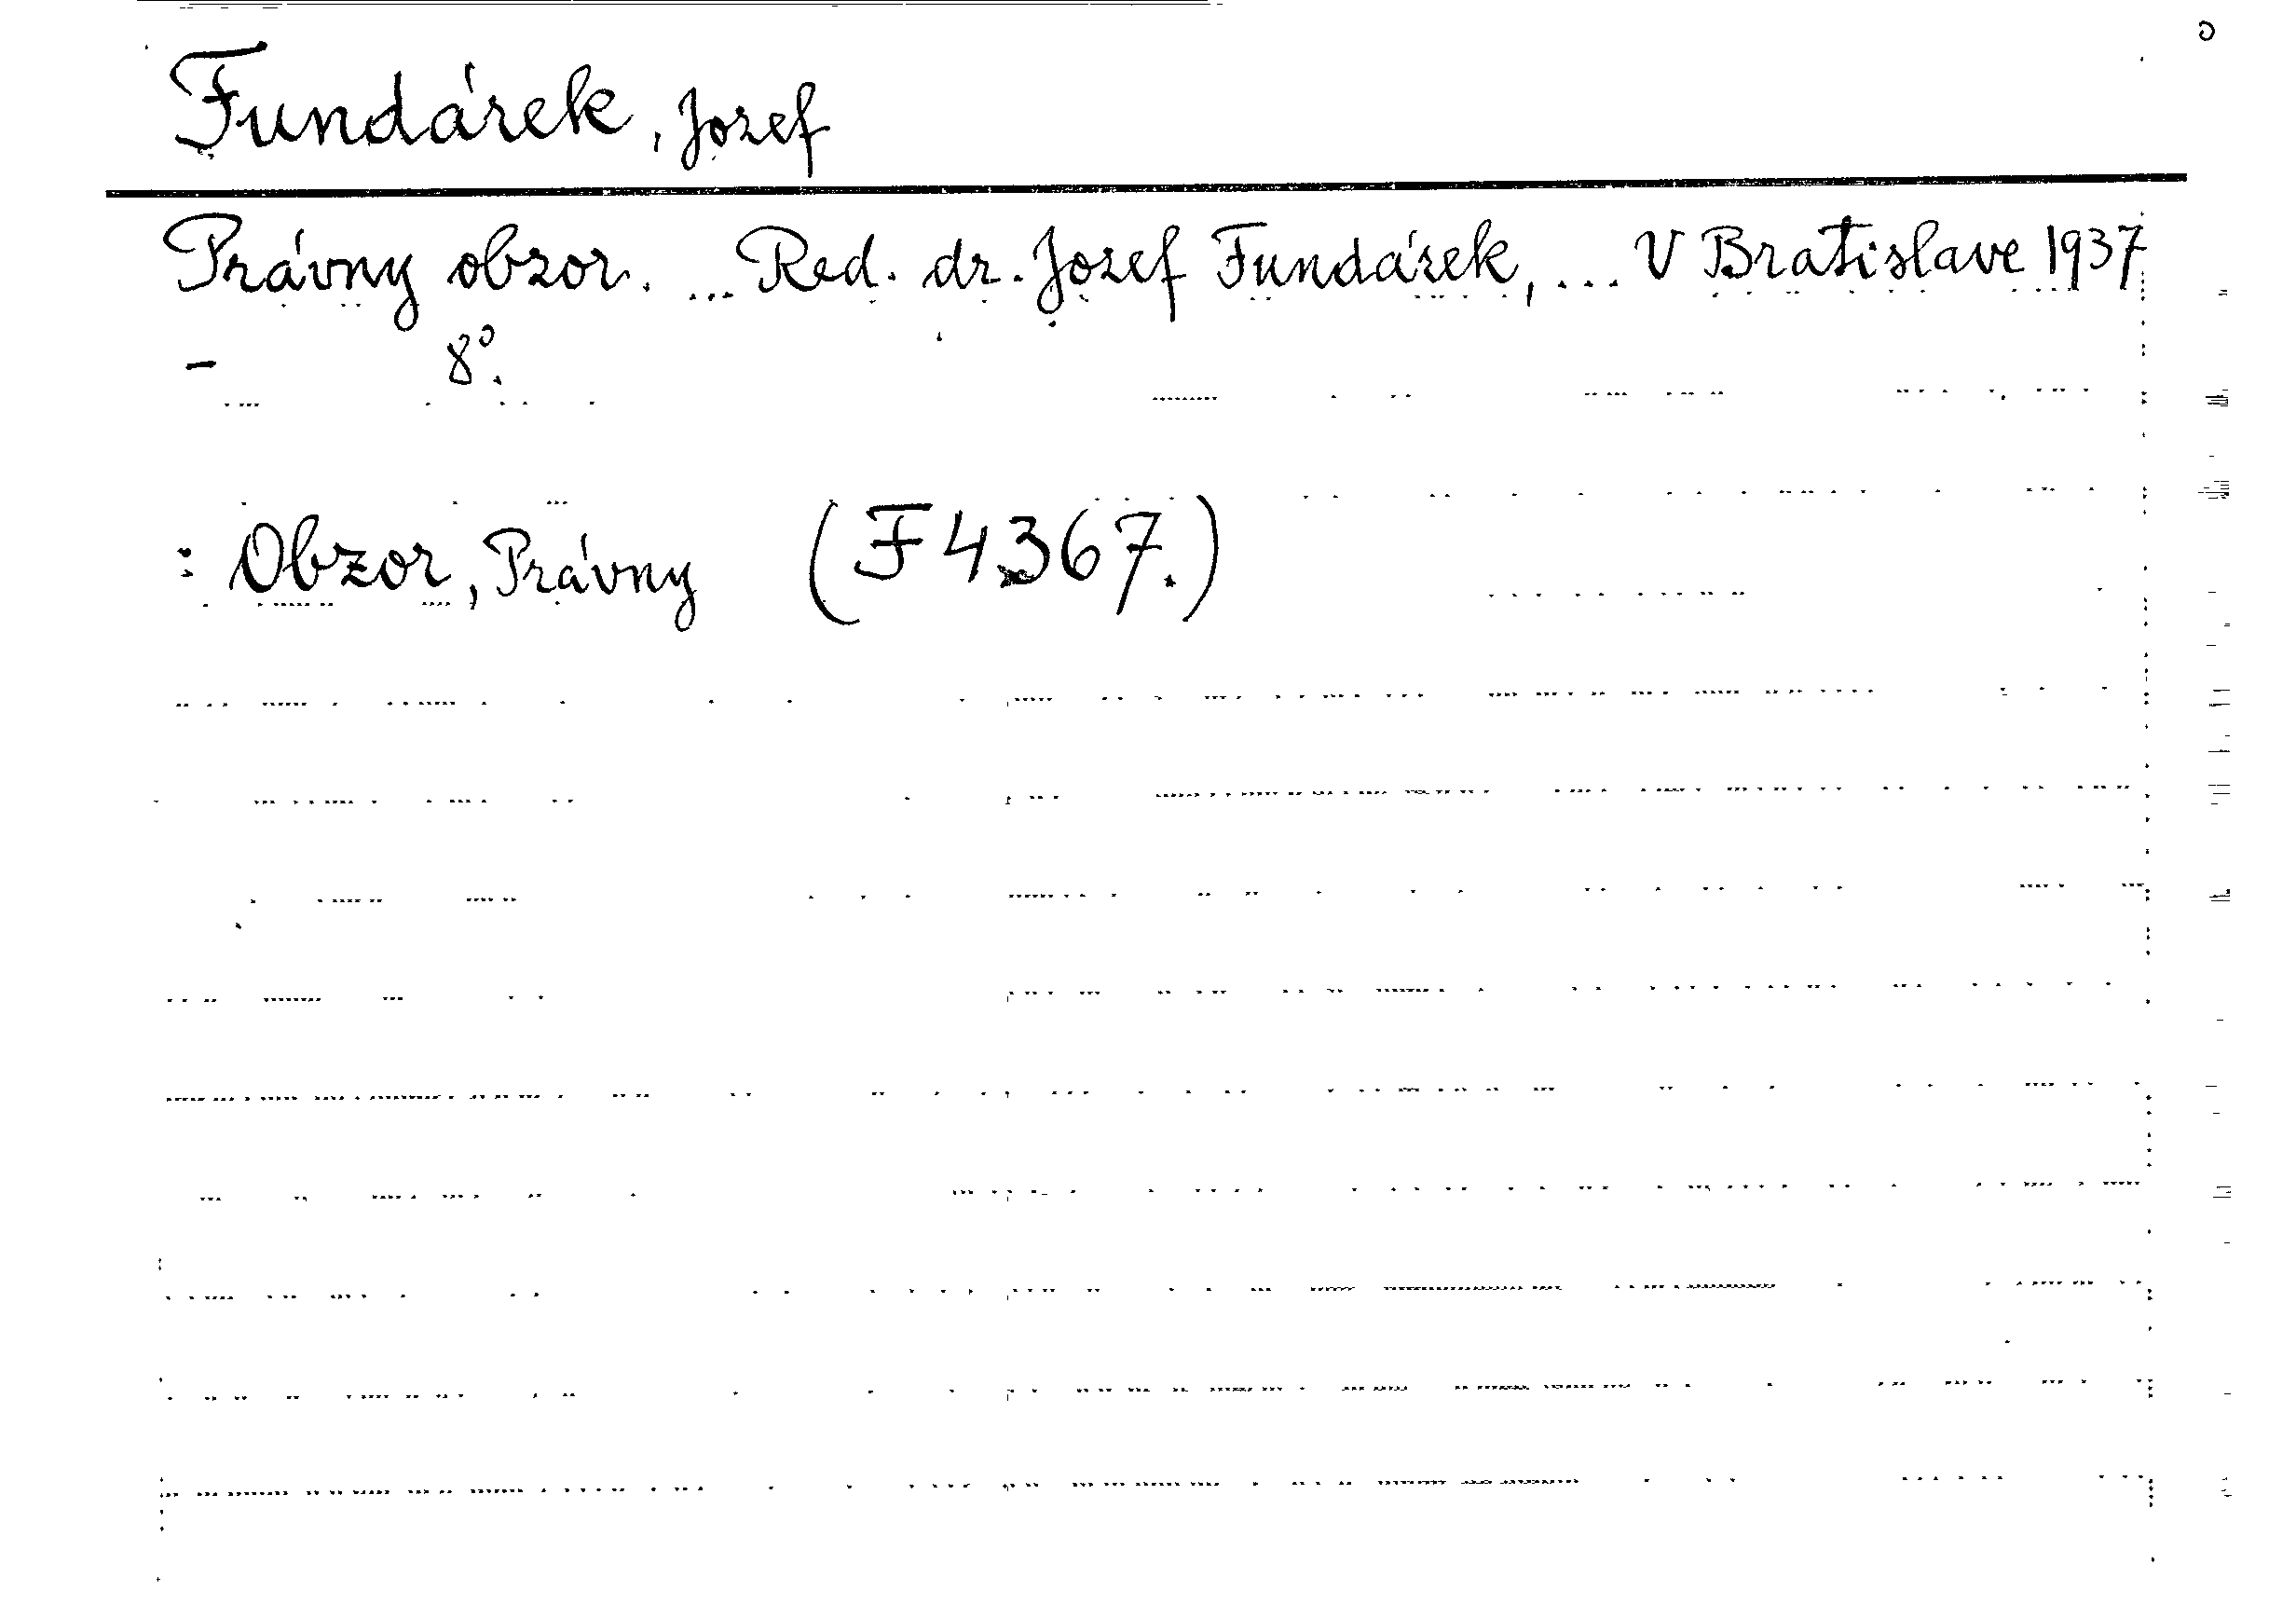 Fundárek, Jozef
Právny obzor. ... Red. dr. Jozef Fundárek, ... V Bratislave 1937
- 8°.
: Obzor, Právny (F 4367.)